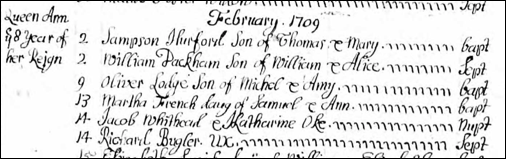 February. 1709
Queen Ann
8 Year of
her Reign
2 Sampson Hurford Son of Thomas & Mary. bapt
2 William Packham Son of William & Alice. Sept
9 Oliver Lodge Son of Michel & Amy. bapt
13 Martha French daug of Samuel & Ann. bapt
14 Jacob Whithead & Katharine Oke. Nupt
14 Richard Bugler. Ux. Sept